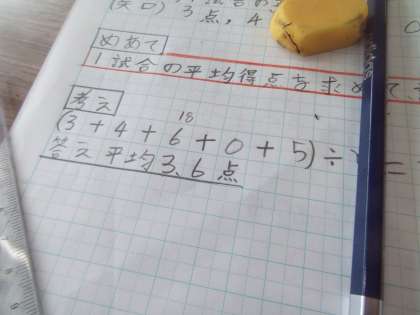 3点, 4
めあて
1試合の平均得点を求めて
考え
18
(3+4+6+0+5)÷ =
答え 平均3.6点